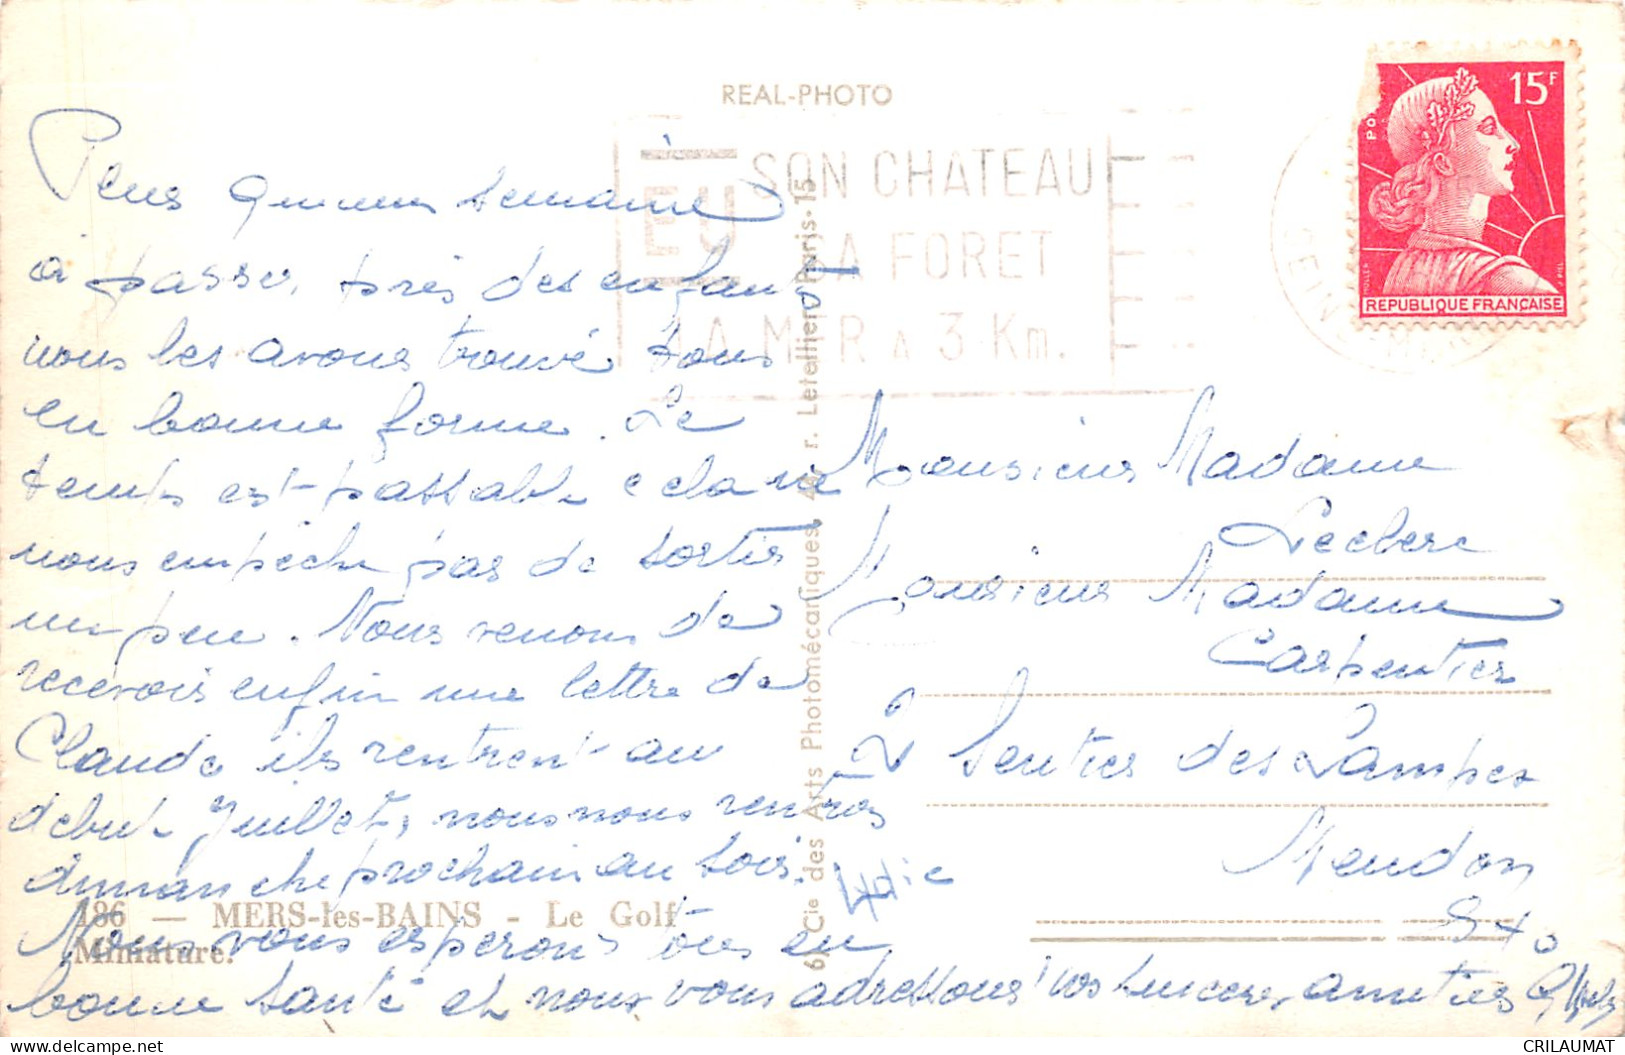 REAL-PHOTO
15F
REPUBLIQUE FRANÇAISE
EU
SON CHATEAU
SA FORET
LA MER A 3 Km.
SEINE
Plus semaine
à passer, près des enfants
nous les avons trouvé tous
en bonne forme. Le
temps est passable cela ne
nous empêche pas de sortir
un peu. Nous venons de
recevoir enfin une lettre de
Claude ils rentrent au
debut Juillet, nous nous rentrons
dimanche prochain au soir.
Nous vous esperons tous en
bonne santé et nous vous adressons nos sinceres amities
Monsieur Madame
Leclerc
Monsieur Madame
Carpentier
2 Sentier des Lampes
Meudon
S x O
186 — MERS-les-BAINS - Le Golf
Miniature.
Cie des Arts Photomécaniques, r. Letellier, Paris-15
CRILAUMAT